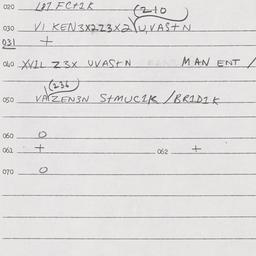 020 L87 FC+1R (210
030 VI KEN3X2Z3X2 UVAS+N
031 +
040 XVIL Z3X UVAS+N MAN ENT /
(236
050 VAIZEN3N S+MUC1K /BR1D1K
060 O
061 + 062 +
070 O